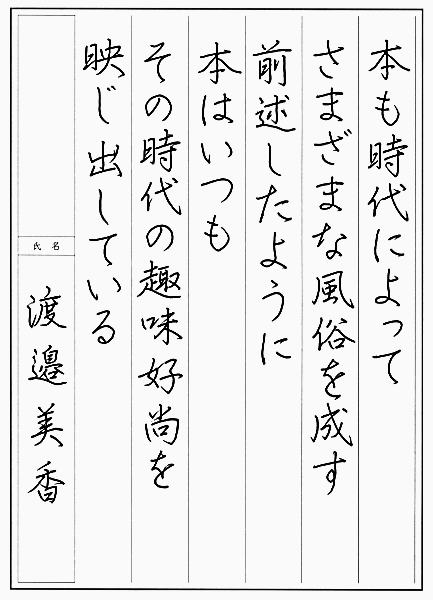 本も時代によって
さまざまな風俗を成す
前述したように
本はいつも
その時代の趣味好尚を
映じ出している
氏名
渡邉美香